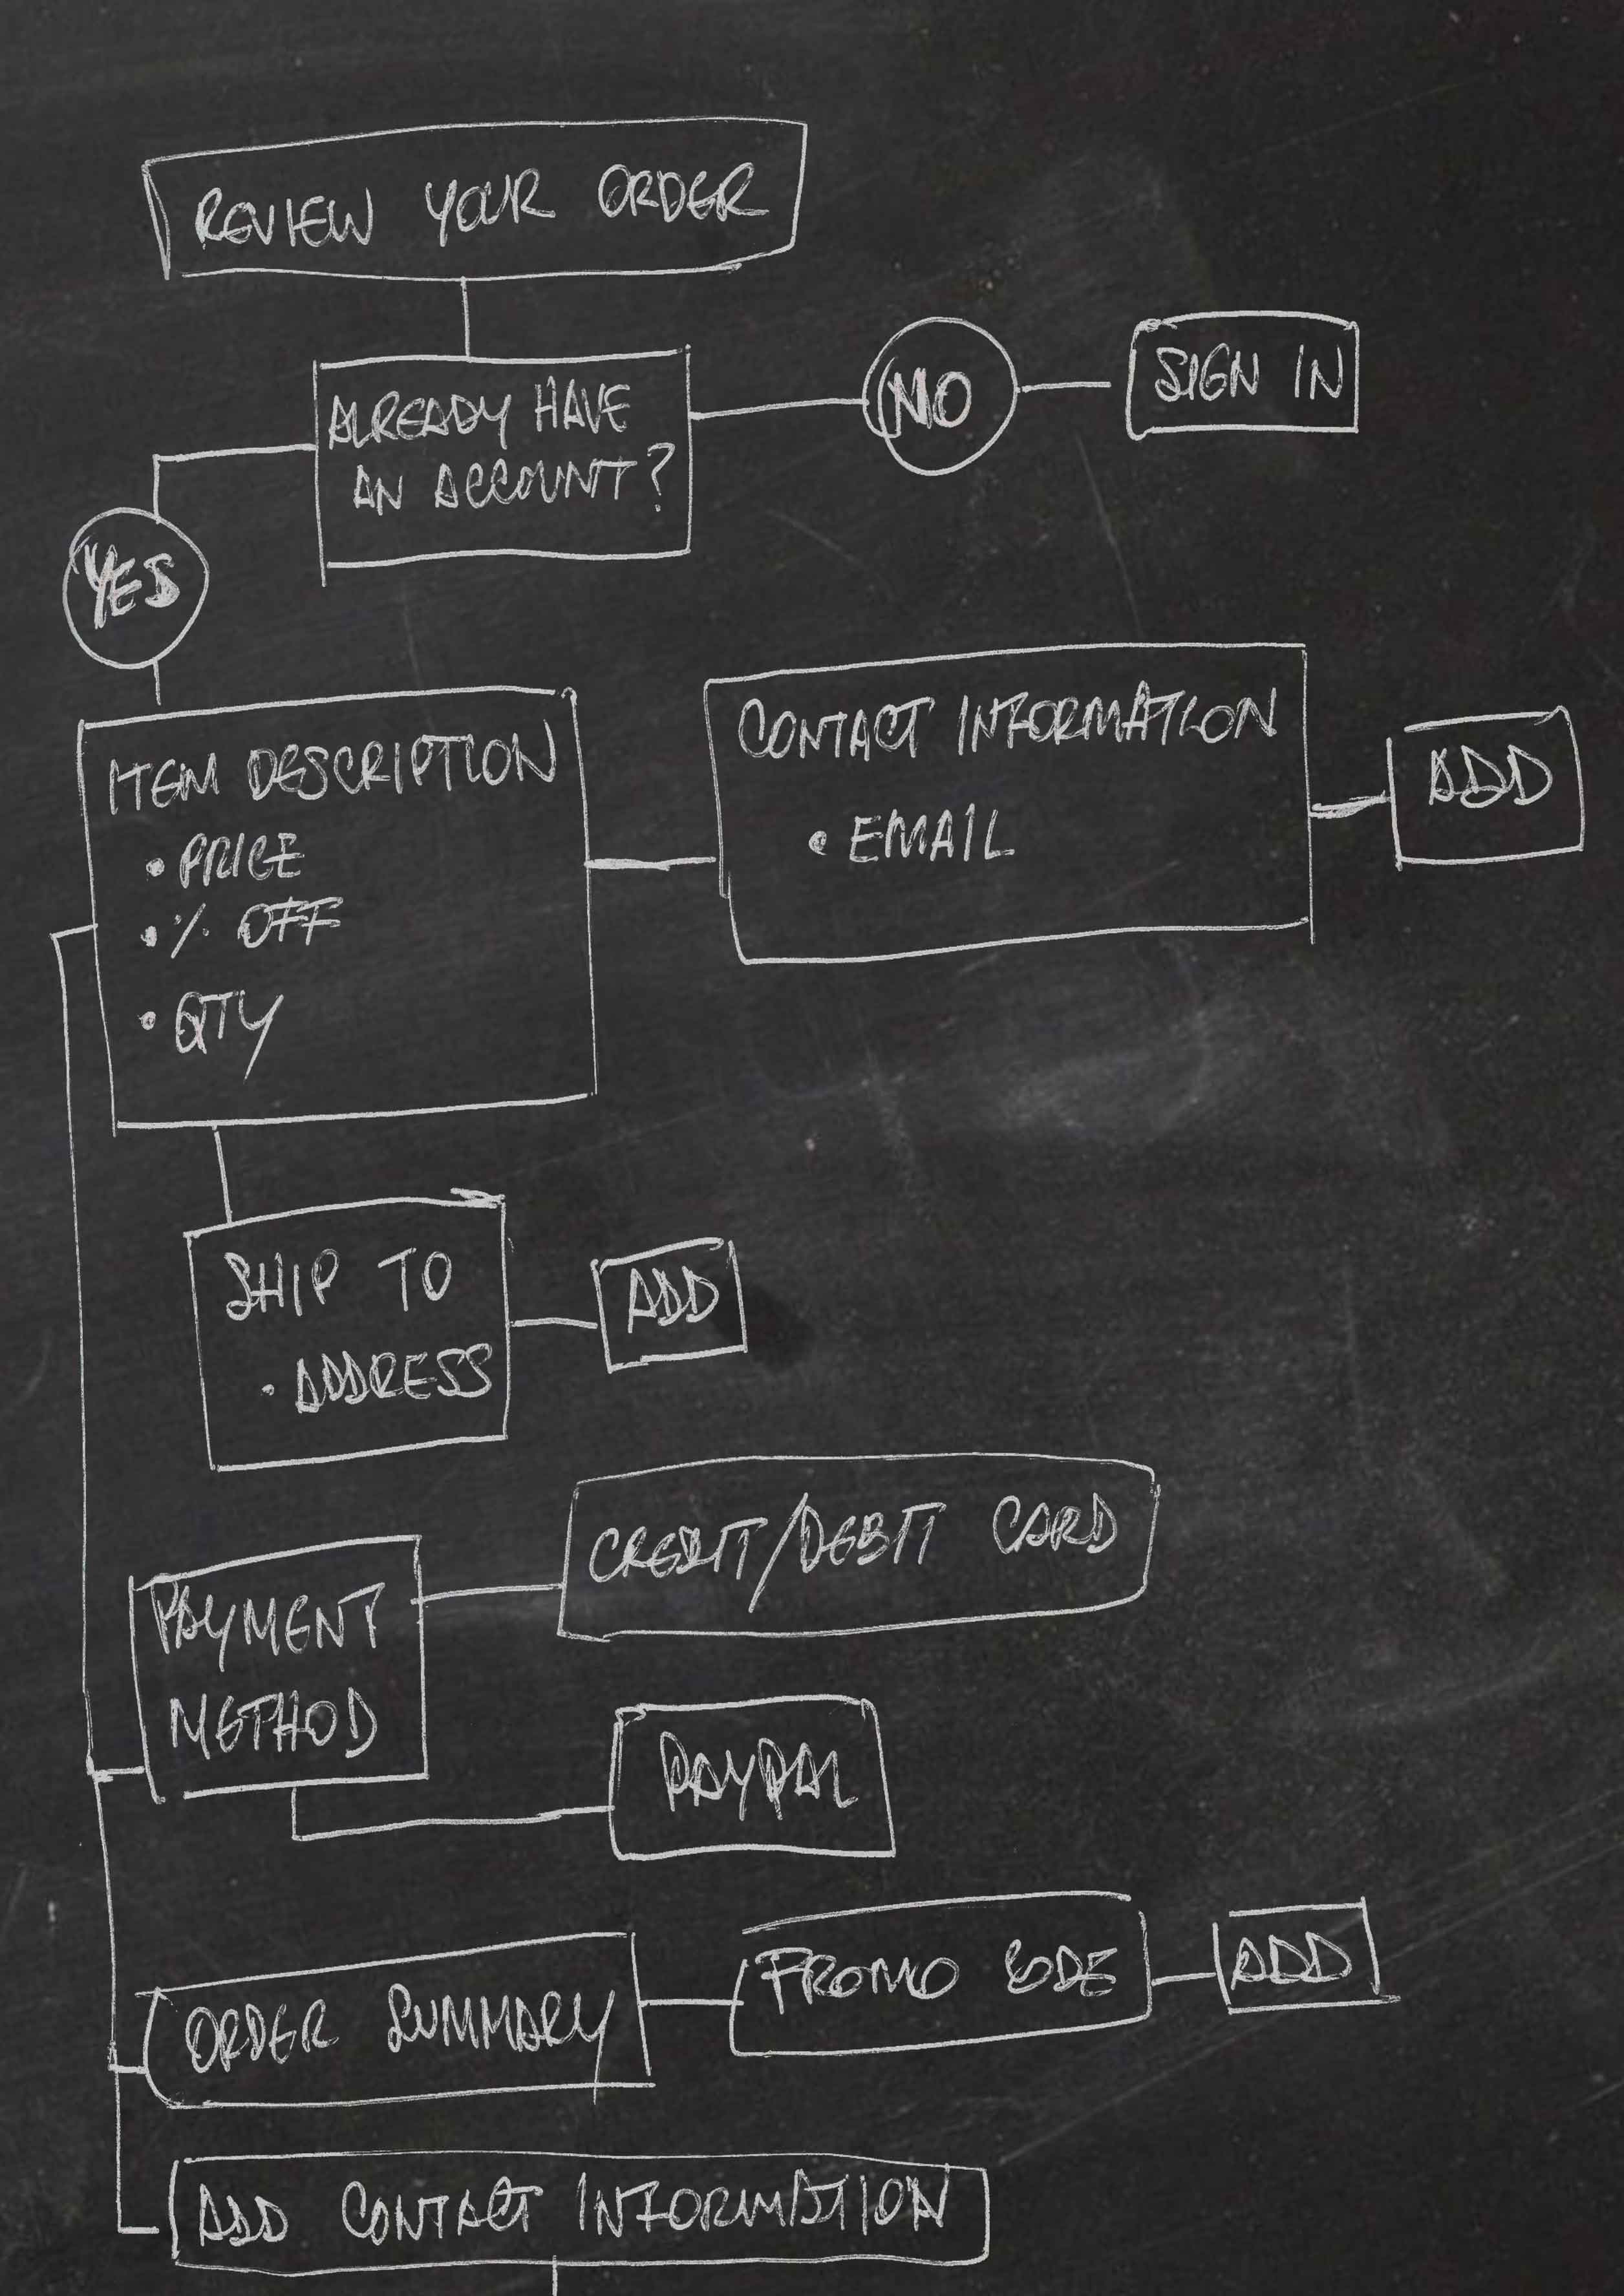 REVIEW YOUR ORDER
ALREADY HAVE
AN ACCOUNT?
NO
SIGN IN
YES
ITEM DESCRIPTION
• PRICE
• % OFF
• QTY
CONTACT INFORMATION
• EMAIL
ADD
SHIP TO
• ADDRESS
ADD
PAYMENT
METHOD
CREDIT/DEBIT CARD
PAYPAL
ORDER SUMMARY
PROMO CODE
ADD
ADD CONTACT INFORMATION